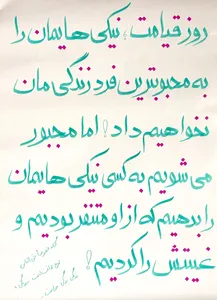 روز قیامت؛ نیکی هایمان را
به محبوبترین فرد زندگی مان
نخواهیم داد! اما مجبور
می شویم به کسی نیکی هایمان
را بدهیم که از او متنفر بودیم و
غیبتش را کردیم!